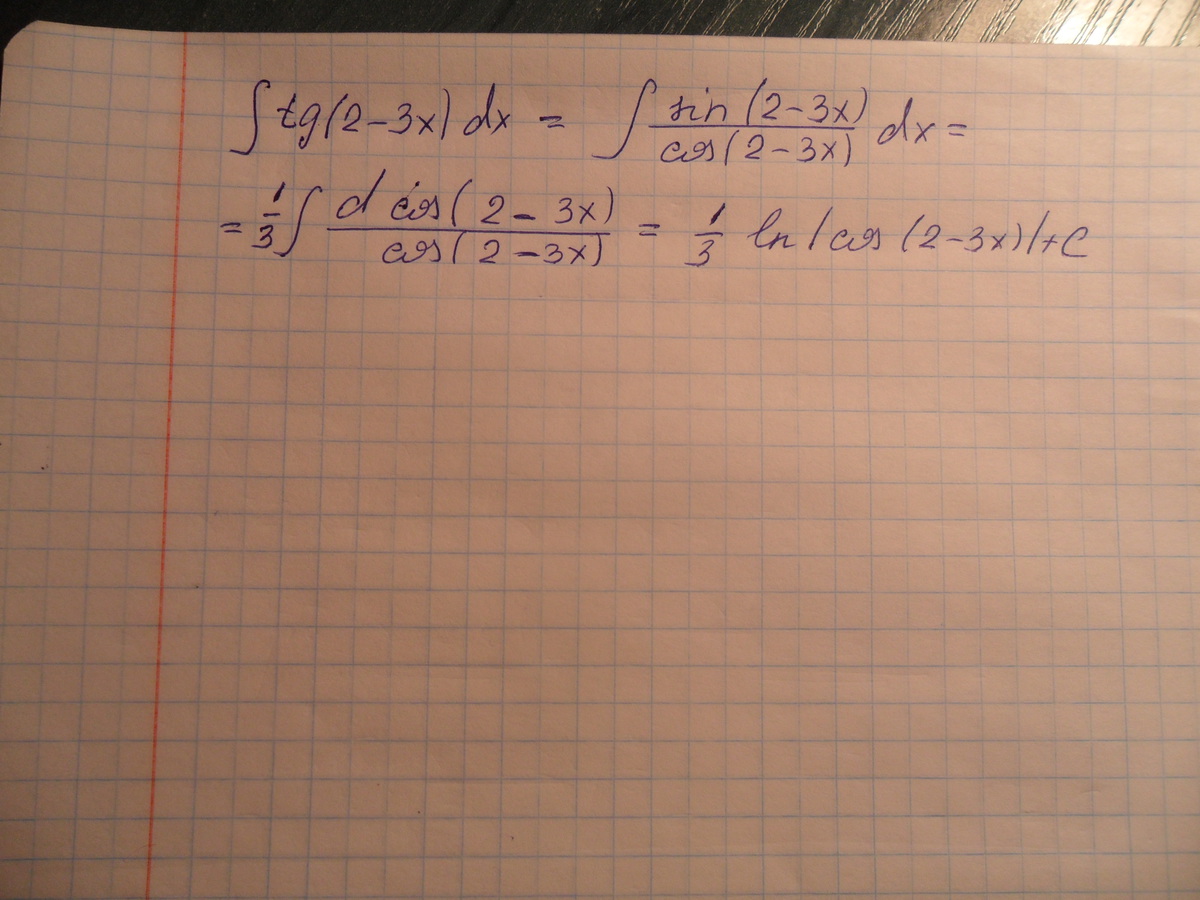 ∫ tg(2-3x) dx = ∫ sin(2-3x)/cos(2-3x) dx =
= 1/3 ∫ d cos(2-3x)/cos(2-3x) = 1/3 ln|cos(2-3x)|+C